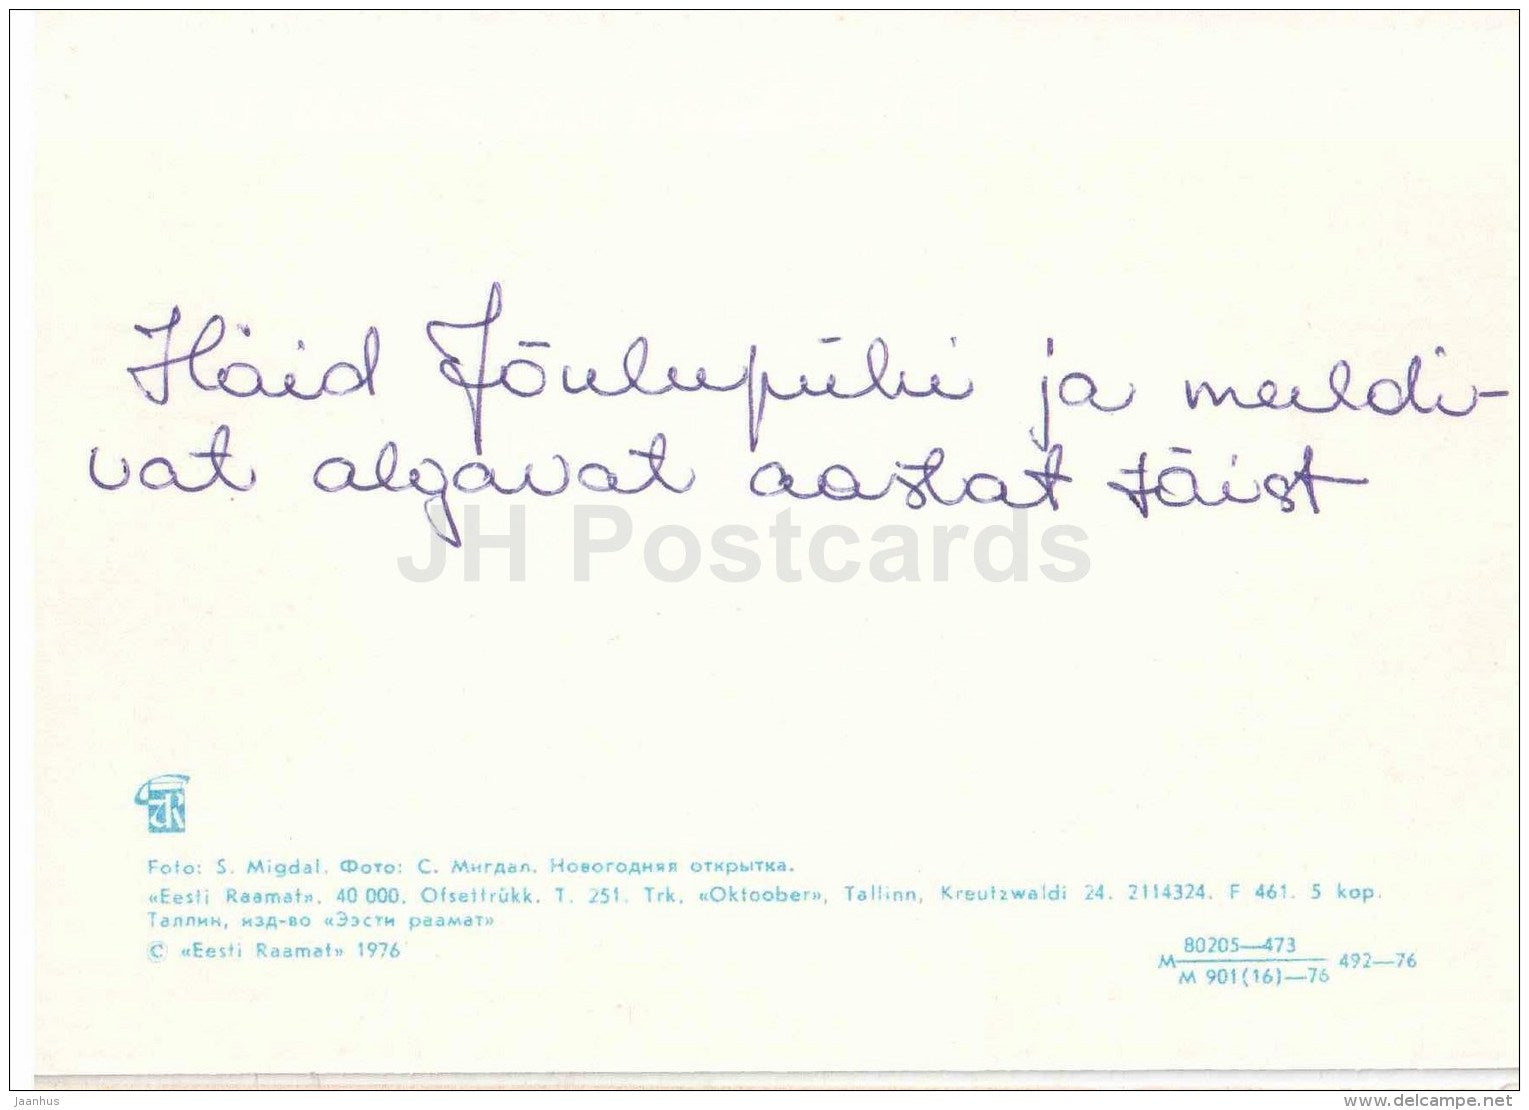 Häid Jõulupühi ja meeldi-
vat algavat aastat täist
JH Postcards
Foto: S. Migdal. Фото: С. Мигдал. Новогодняя открытка.
«Eesti Raamat». 40 000. Ofsettrükk. T. 251. Trk. «Oktoober», Tallinn, Kreutzwaldi 24. 2114324. F 461. 5 kop.
Таллин, изд-во «Ээсти раамат»
© «Eesti Raamat» 1976
80205—473
М 492—76
М 901(16)—76
Jaanhus
www.delcampe.net